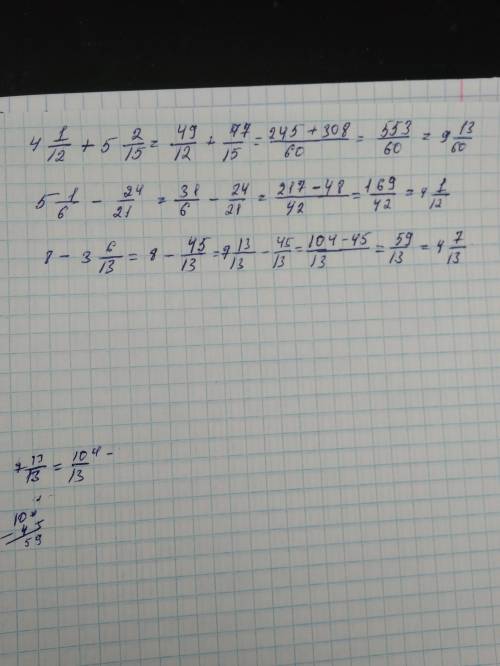 4 1/12 + 5 2/15 = 49/12 + 77/15 = (245 + 308)/60 = 553/60 = 9 13/60
5 1/6 - 24/21 = 31/6 - 24/21 = (217 - 48)/42 = 169/42 = 4 1/12
8 - 3 6/13 = 8 - 45/13 = 7 13/13 - 45/13 = (104 - 45)/13 = 59/13 = 4 7/13
7 13/13 = 104/13 -
104
- 45
59